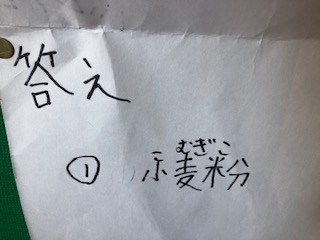 答え
① 小麦粉
むぎこ